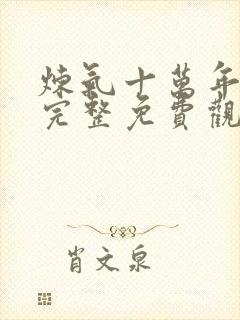 煉氣十萬年
完整免費觀
肖文泉